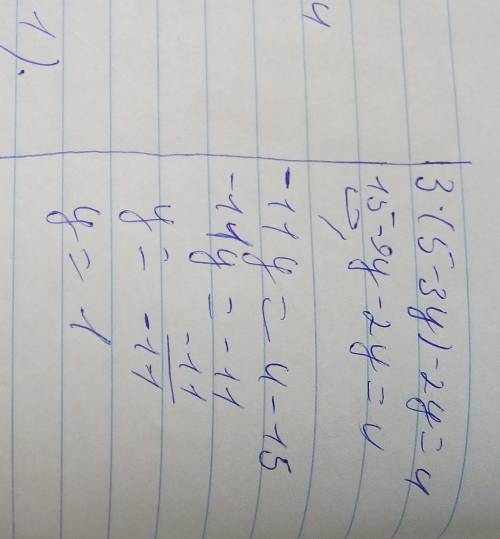 3·(5-3y)-2y=4
15-9y-2y=4
-11y=4-15
-11y=-11
y=-11/-11
y=1
4
1).